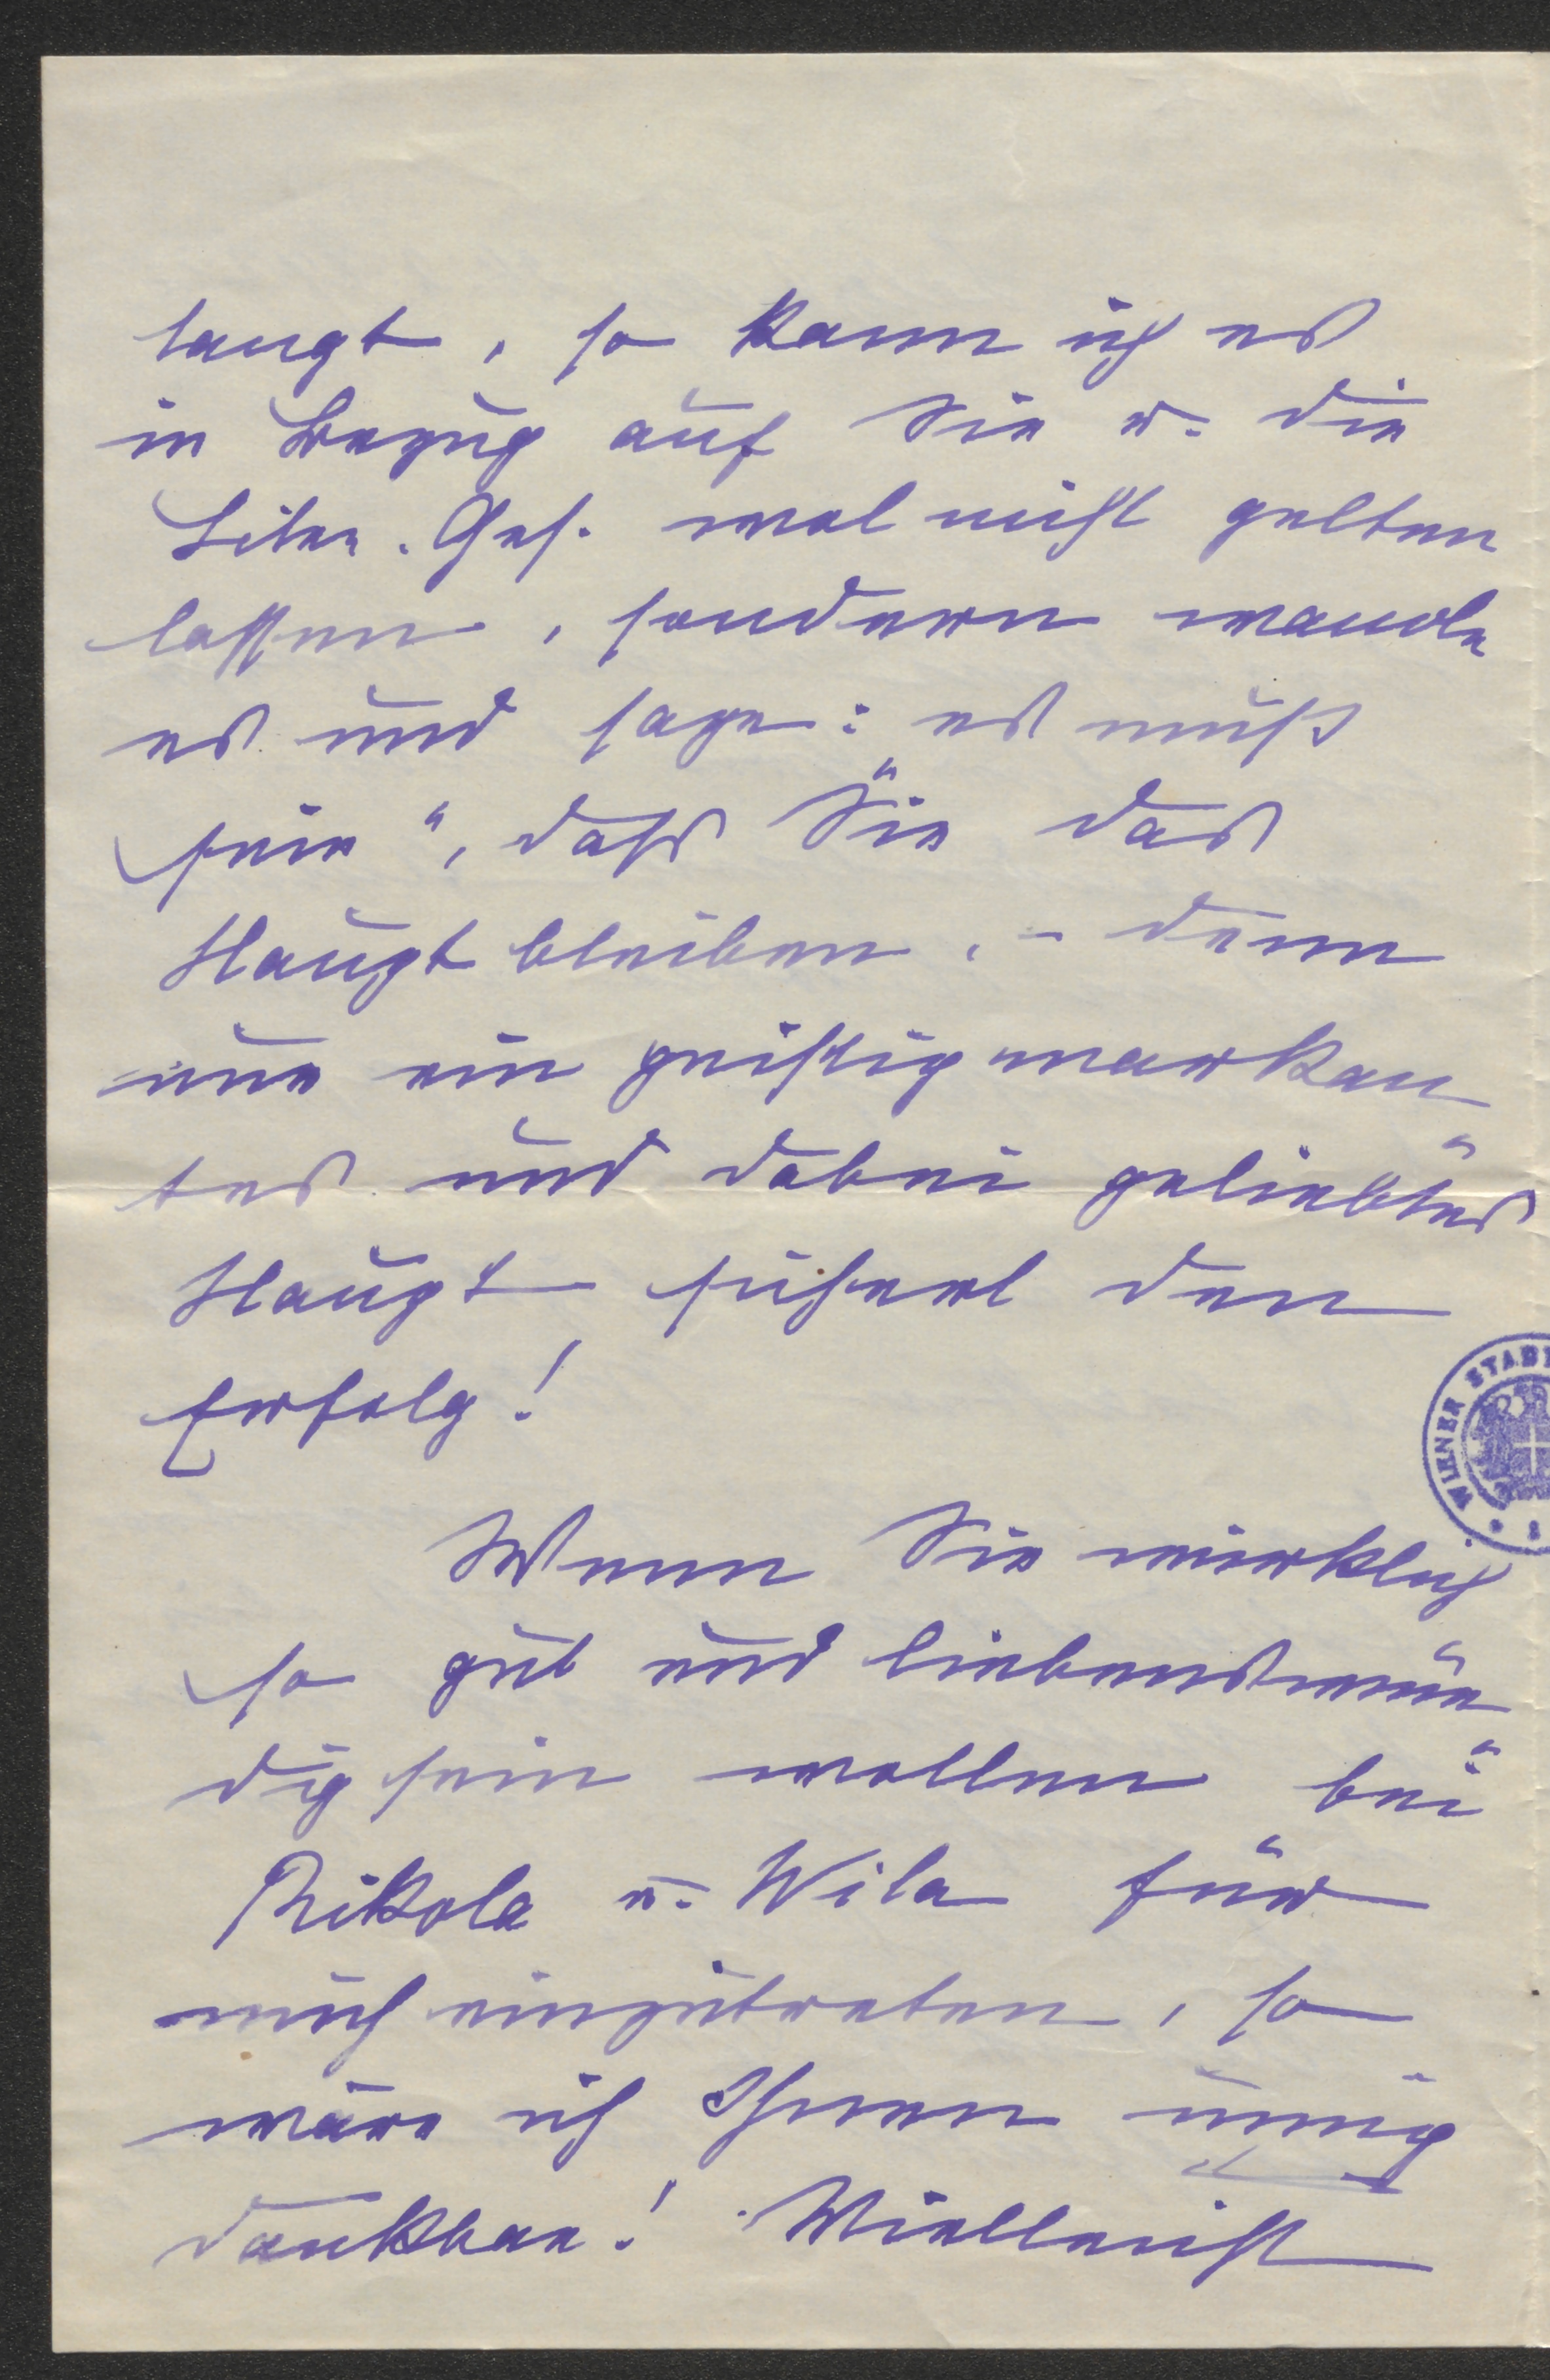 langt, so kann ich es
in Bezug auf Sie u. die
Liter. Ges. mal nicht gelten
lassen, sondern wandle
es und sage: „es muß
sein“, dass Sie das
Haupt bleiben, – denn
nur ein geistig markan
tes und dabei geliebtes
Haupt sichert den
Erfolg!
Wenn Sie wirklich
so gut und liebenswür
dig sein wollen bei
Rikola u. Wila für
mich einzutreten, so
wäre ich Ihnen innig
dankbar! Vielleicht
WIENER STADT